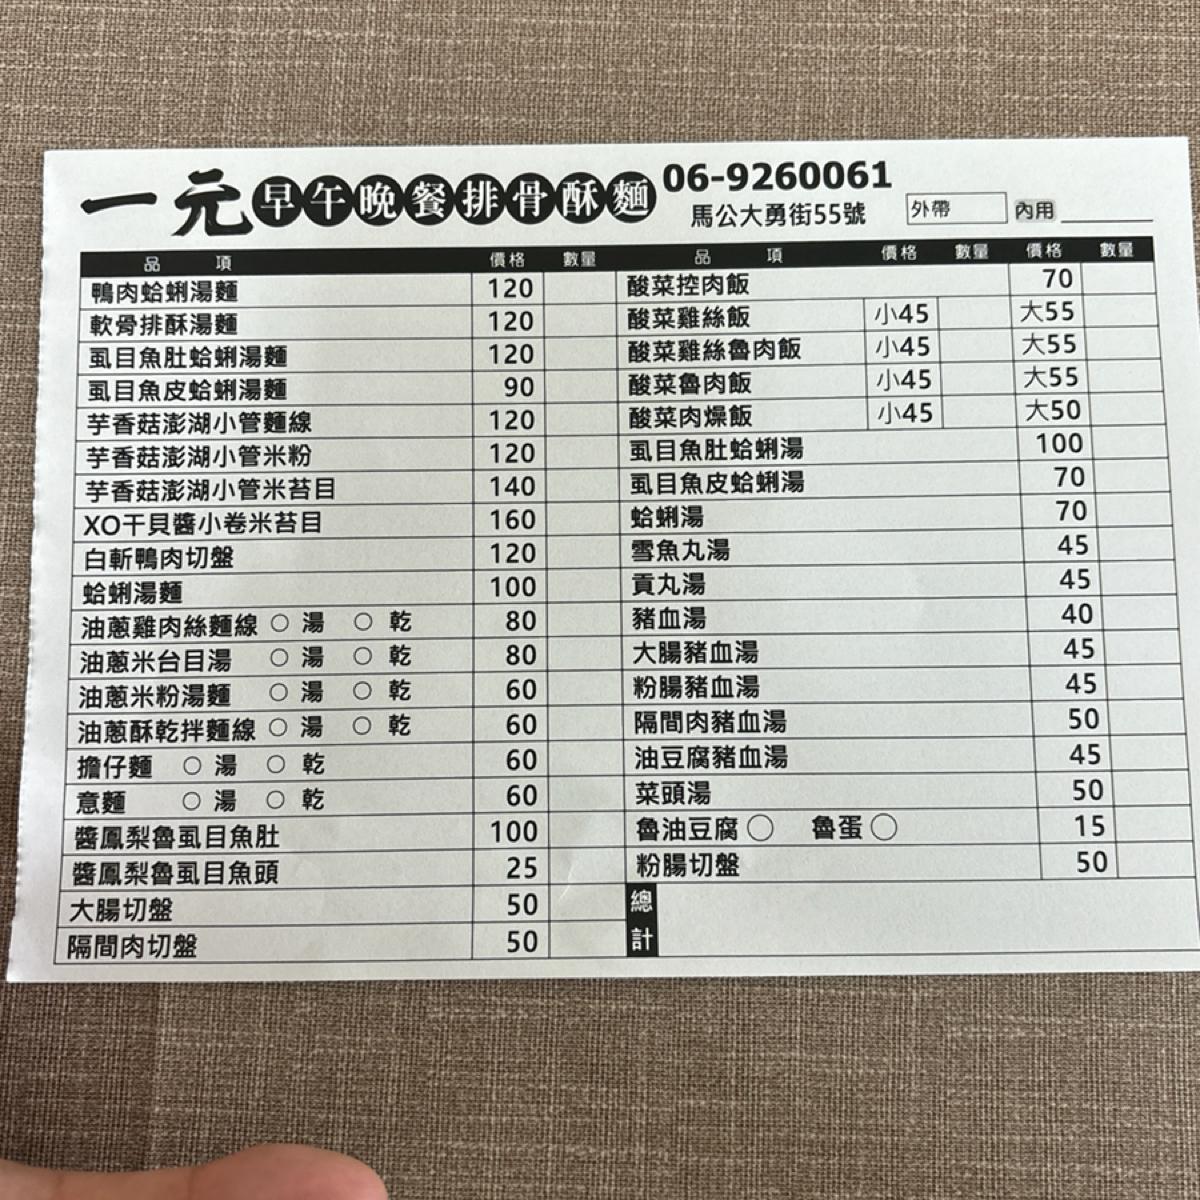 一元早午晚餐排骨酥麵
06-9260061
馬公大勇街55號
外帶 內用
品項 價格 數量 品項 價格 數量 價格 數量
鴨肉蛤蜊湯麵 120
軟骨排酥湯麵 120
虱目魚肚蛤蜊湯麵 120
虱目魚皮蛤蜊湯麵 90
芋香菇澎湖小管麵線 120
芋香菇澎湖小管米粉 120
芋香菇澎湖小管米苔目 140
XO干貝醬小卷米苔目 160
白斬鴨肉切盤 120
蛤蜊湯麵 100
油蔥雞肉絲麵線 ○ 湯 ○ 乾 80
油蔥米台目湯 ○ 湯 ○ 乾 80
油蔥米粉湯麵 ○ 湯 ○ 乾 60
油蔥酥乾拌麵線 ○ 湯 ○ 乾 60
擔仔麵 ○ 湯 ○ 乾 60
意麵 ○ 湯 ○ 乾 60
醬鳳梨魯虱目魚肚 100
醬鳳梨魯虱目魚頭 25
大腸切盤 50
隔間肉切盤 50
酸菜控肉飯 70
酸菜雞絲飯 小45 大55
酸菜雞絲魯肉飯 小45 大55
酸菜魯肉飯 小45 大55
酸菜肉燥飯 小45 大50
虱目魚肚蛤蜊湯 100
虱目魚皮蛤蜊湯 70
蛤蜊湯 70
雪魚丸湯 45
貢丸湯 45
豬血湯 40
大腸豬血湯 45
粉腸豬血湯 45
隔間肉豬血湯 50
油豆腐豬血湯 45
菜頭湯 50
魯油豆腐 ○ 魯蛋 ○ 15
粉腸切盤 50
總計